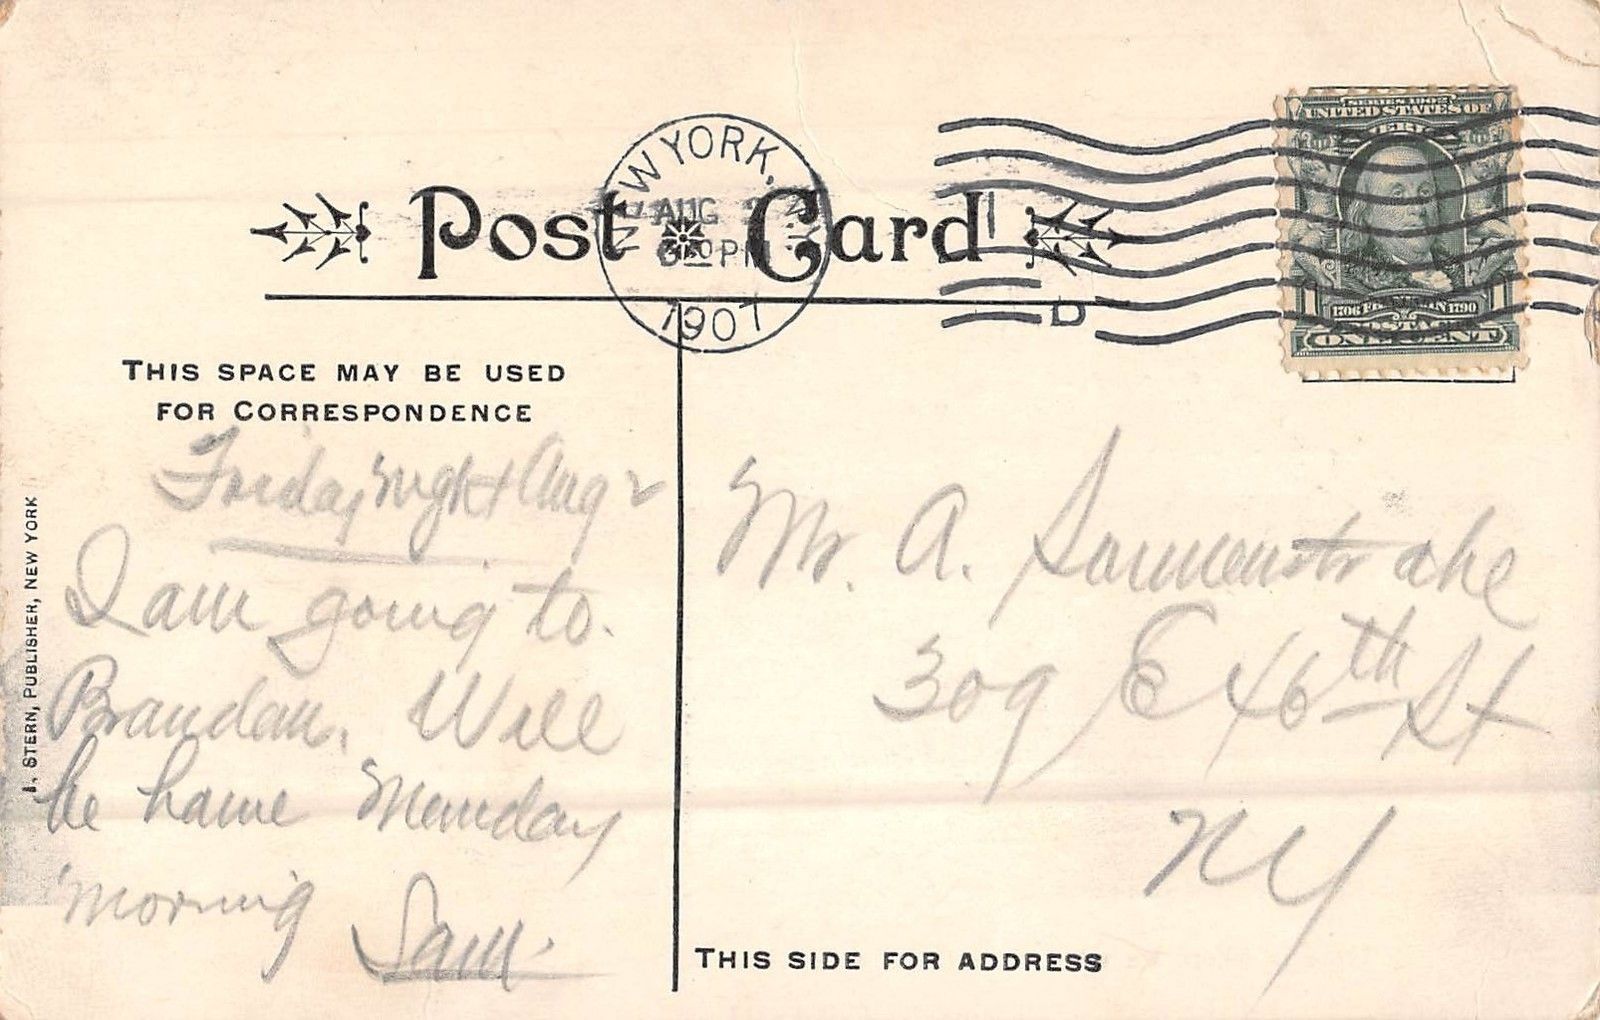 NEW YORK, N.Y.
AUG 2
6 30 PM
1907
D
SERIES 1902
UNITED STATES OF
AMERICA
1706 FRANKLIN 1790
1 1
POSTAGE
ONE CENT
Post Card
THIS SPACE MAY BE USED
FOR CORRESPONDENCE
Friday night Aug 2
I am going to
Brandan. Will
be home Monday
morning
Sam.
I. STERN, PUBLISHER, NEW YORK
Mr. A.
309 E 46th St
NY
THIS SIDE FOR ADDRESS